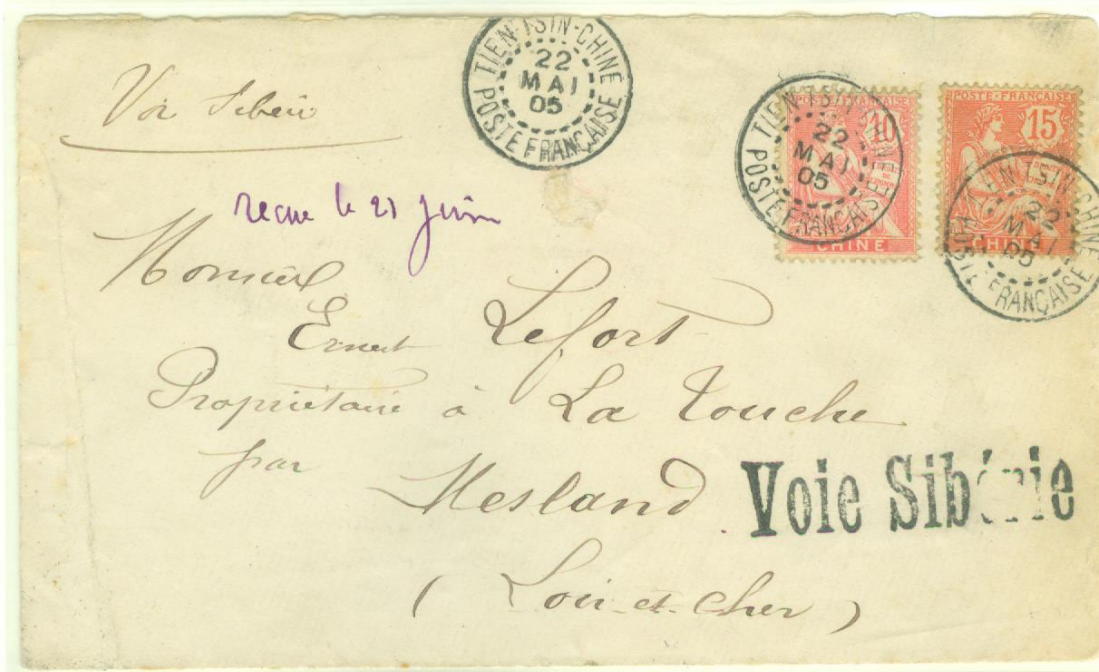 TIEN-TSIN-CHINE
22
MAI
05
POSTE FRANÇAISE
Voie Sibérie
reçue le 21 juin
TIEN-TSIN-CHINE
22
MAI
05
POSTE FRANÇAISE
POSTE FRANÇAISE
10
CHINE
POSTE FRANÇAISE
15
CHINE
TIEN-TSIN-CHINE
22
MAI
05
POSTE FRANÇAISE
Monsieur
Ernest Lefort
Propriétaire à La Touche
par Mesland
Voie Sibérie
(Loir-et-Cher)